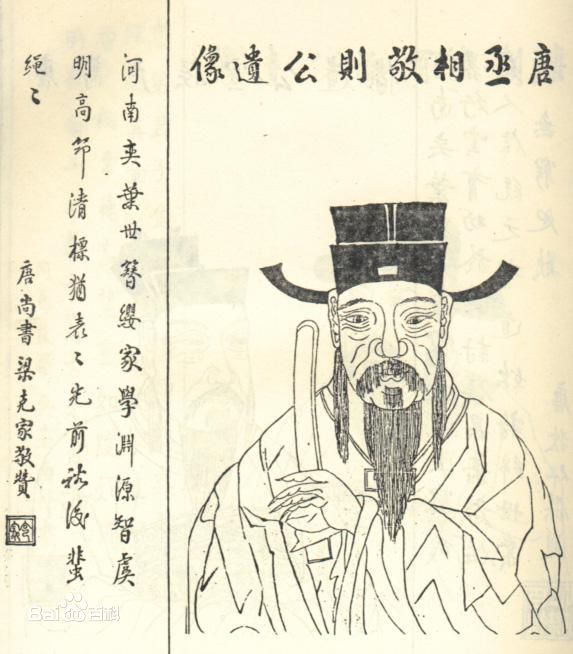 唐丞相敬則公遺像
河南奕葉世簪纓家學淵源智虞
明高節清標猶表〻光前裕後蜚
繩〻
唐尚書梁克家敬贊
Bai百科